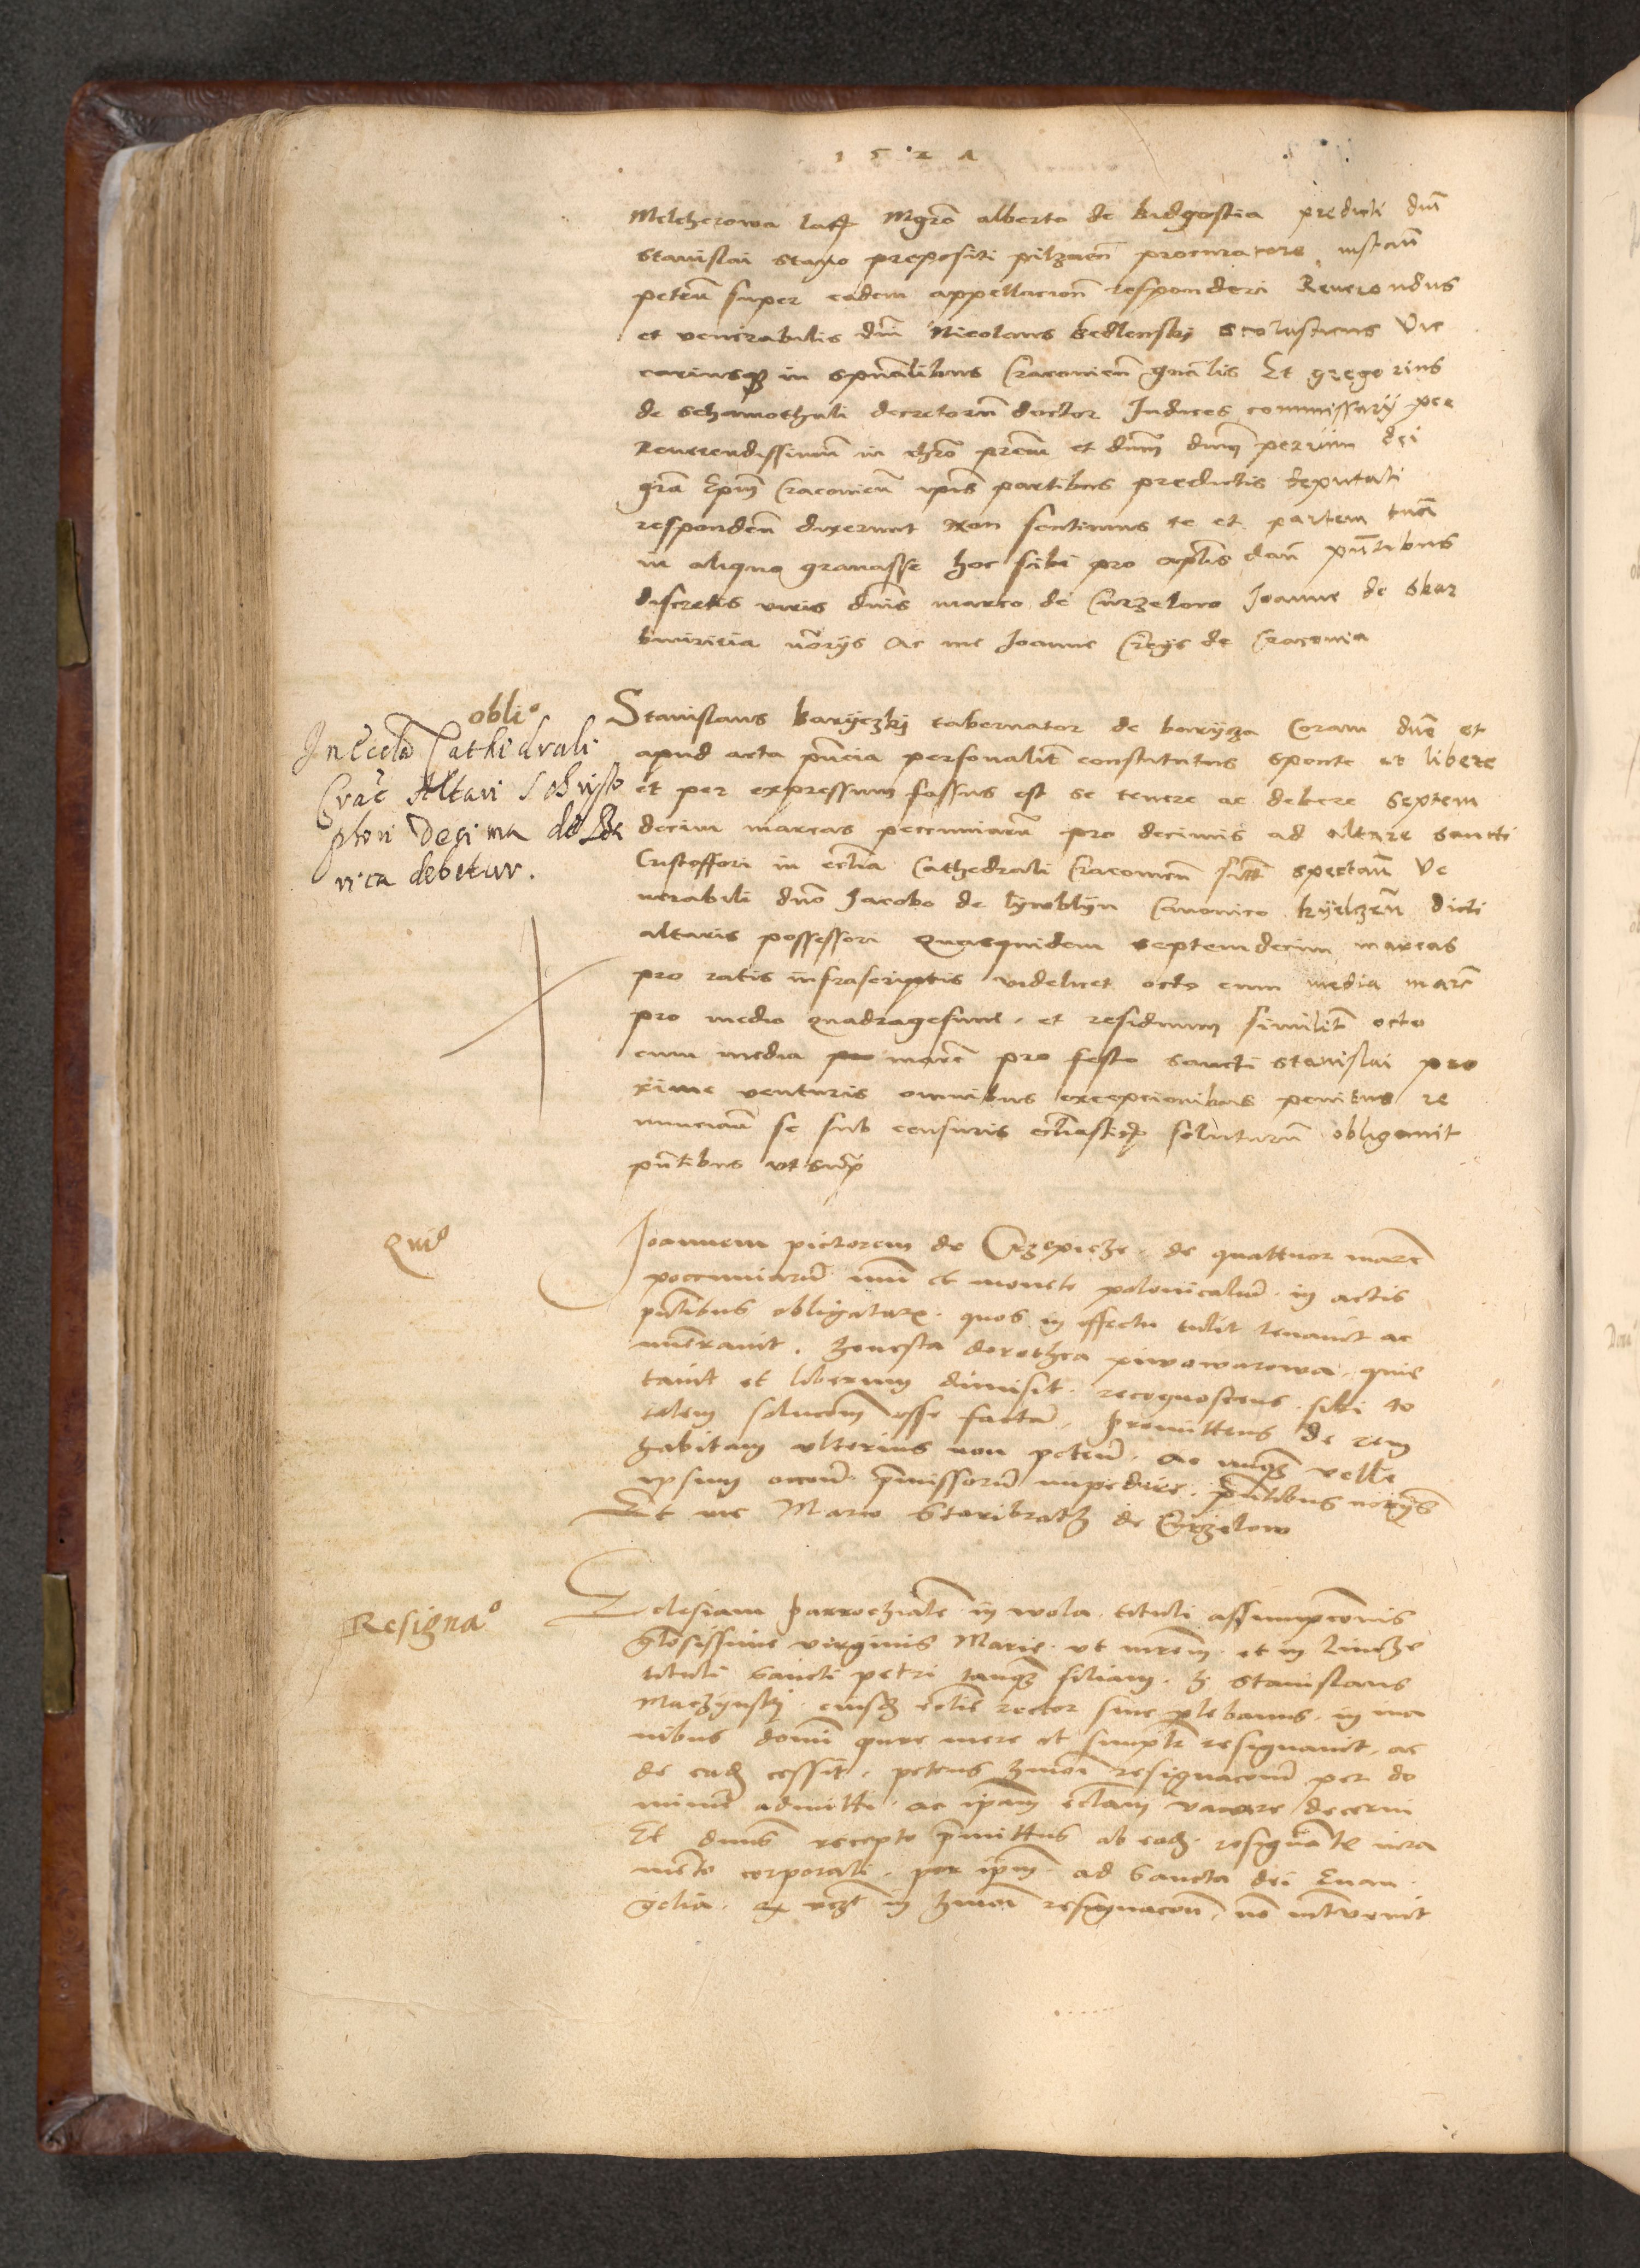 1521
Melcherowa laicz Mgro alberto de bidgostia predicti dni
Stanislai stano prepositi pilznen procuratore instan
peten super eadem appellacion responderi Reverendus
et venerabilis dni Nicolaus bedlensky scolasticus Vic
cariusq in spualibus Cracovien gnalis Et gregorius
de schamothuli decretorum doctor Iudices commissarij per
Reverendissimum in chro prem et dnm dnm petrum dei
gra Epm Cracovien ipis partibus predictis deputati
responden dixerunt Non sentimus te et partem tuam
in aliquo gravasse hoc sibi pro aplis dan pntibus
discretis viris dnis marco de Curzelow Joanne de skar
bimiria norijs Ac me Joanne Crzys de Cracovia
oblio
In Eccla Cathedrali
Crac Altari S Christo
phori Decima de Bo
rica debetur.
Stanislaus boryczky tabernator de borycza Coram dne et
apud acta pncia personalit constitutus sponte et libere
et per expressum fassus est se tenere ac debere septem
decim marcas peccuniarum pro decimis ad altare sancti
Cristoffori in ecclia Cathedrali Cracovien situm spectan Ve
nerabili dno Jacobo de Canonico kyelzen dicti
altaris possessori Quasquidem septemdecim marcas
pro ratis infrascriptis videlicet octo cum media marc
pro medio quadragesime et residuum similit octo
cum media marc pro festo sancti Stanislai pro
xime venturis omnibus excepcionibus penitus re
nuncian se sub censuris ecclasticis soluturum obligavit
pntibus ut supra
Quio
Joannem pictorem de Crzepicze de quattuor marc
peccuniarum nui et monete polonicalium in actis
pntibus obligatare quos in effectu tulit levavit ac
numeravit honesta dorothea piwowarowa quie
tavit et liberum dimisit recognoscens sibi to
talem solucionem esse factam promittens de rem
habitam ulterius non petere ac nunquam velle
ipsum occone premissorum impedire pntibus norijs
Et me Marco Staribrath de Curzelow
Resignao
Eclesiam parrochialem in wola tituli assumpcionis
gloriosissime virginis Marie ut mrem et in
tituli Sancti petri tanquam filiam h Stanislaus
Machynsky eiusdem ecclie rector sive plebanus in ma
nibus domini pure mere et simplr resignavit ac
de eadem cessit petens hmoi resignacionem per do
minum admitti ac ipam eclam vacare decerni
Et dnus recepto primittus ab eodem resignante iura
mento corporali per ipm ad Sancta dei Evan
gelia q in hmoi resignacione non intervenit